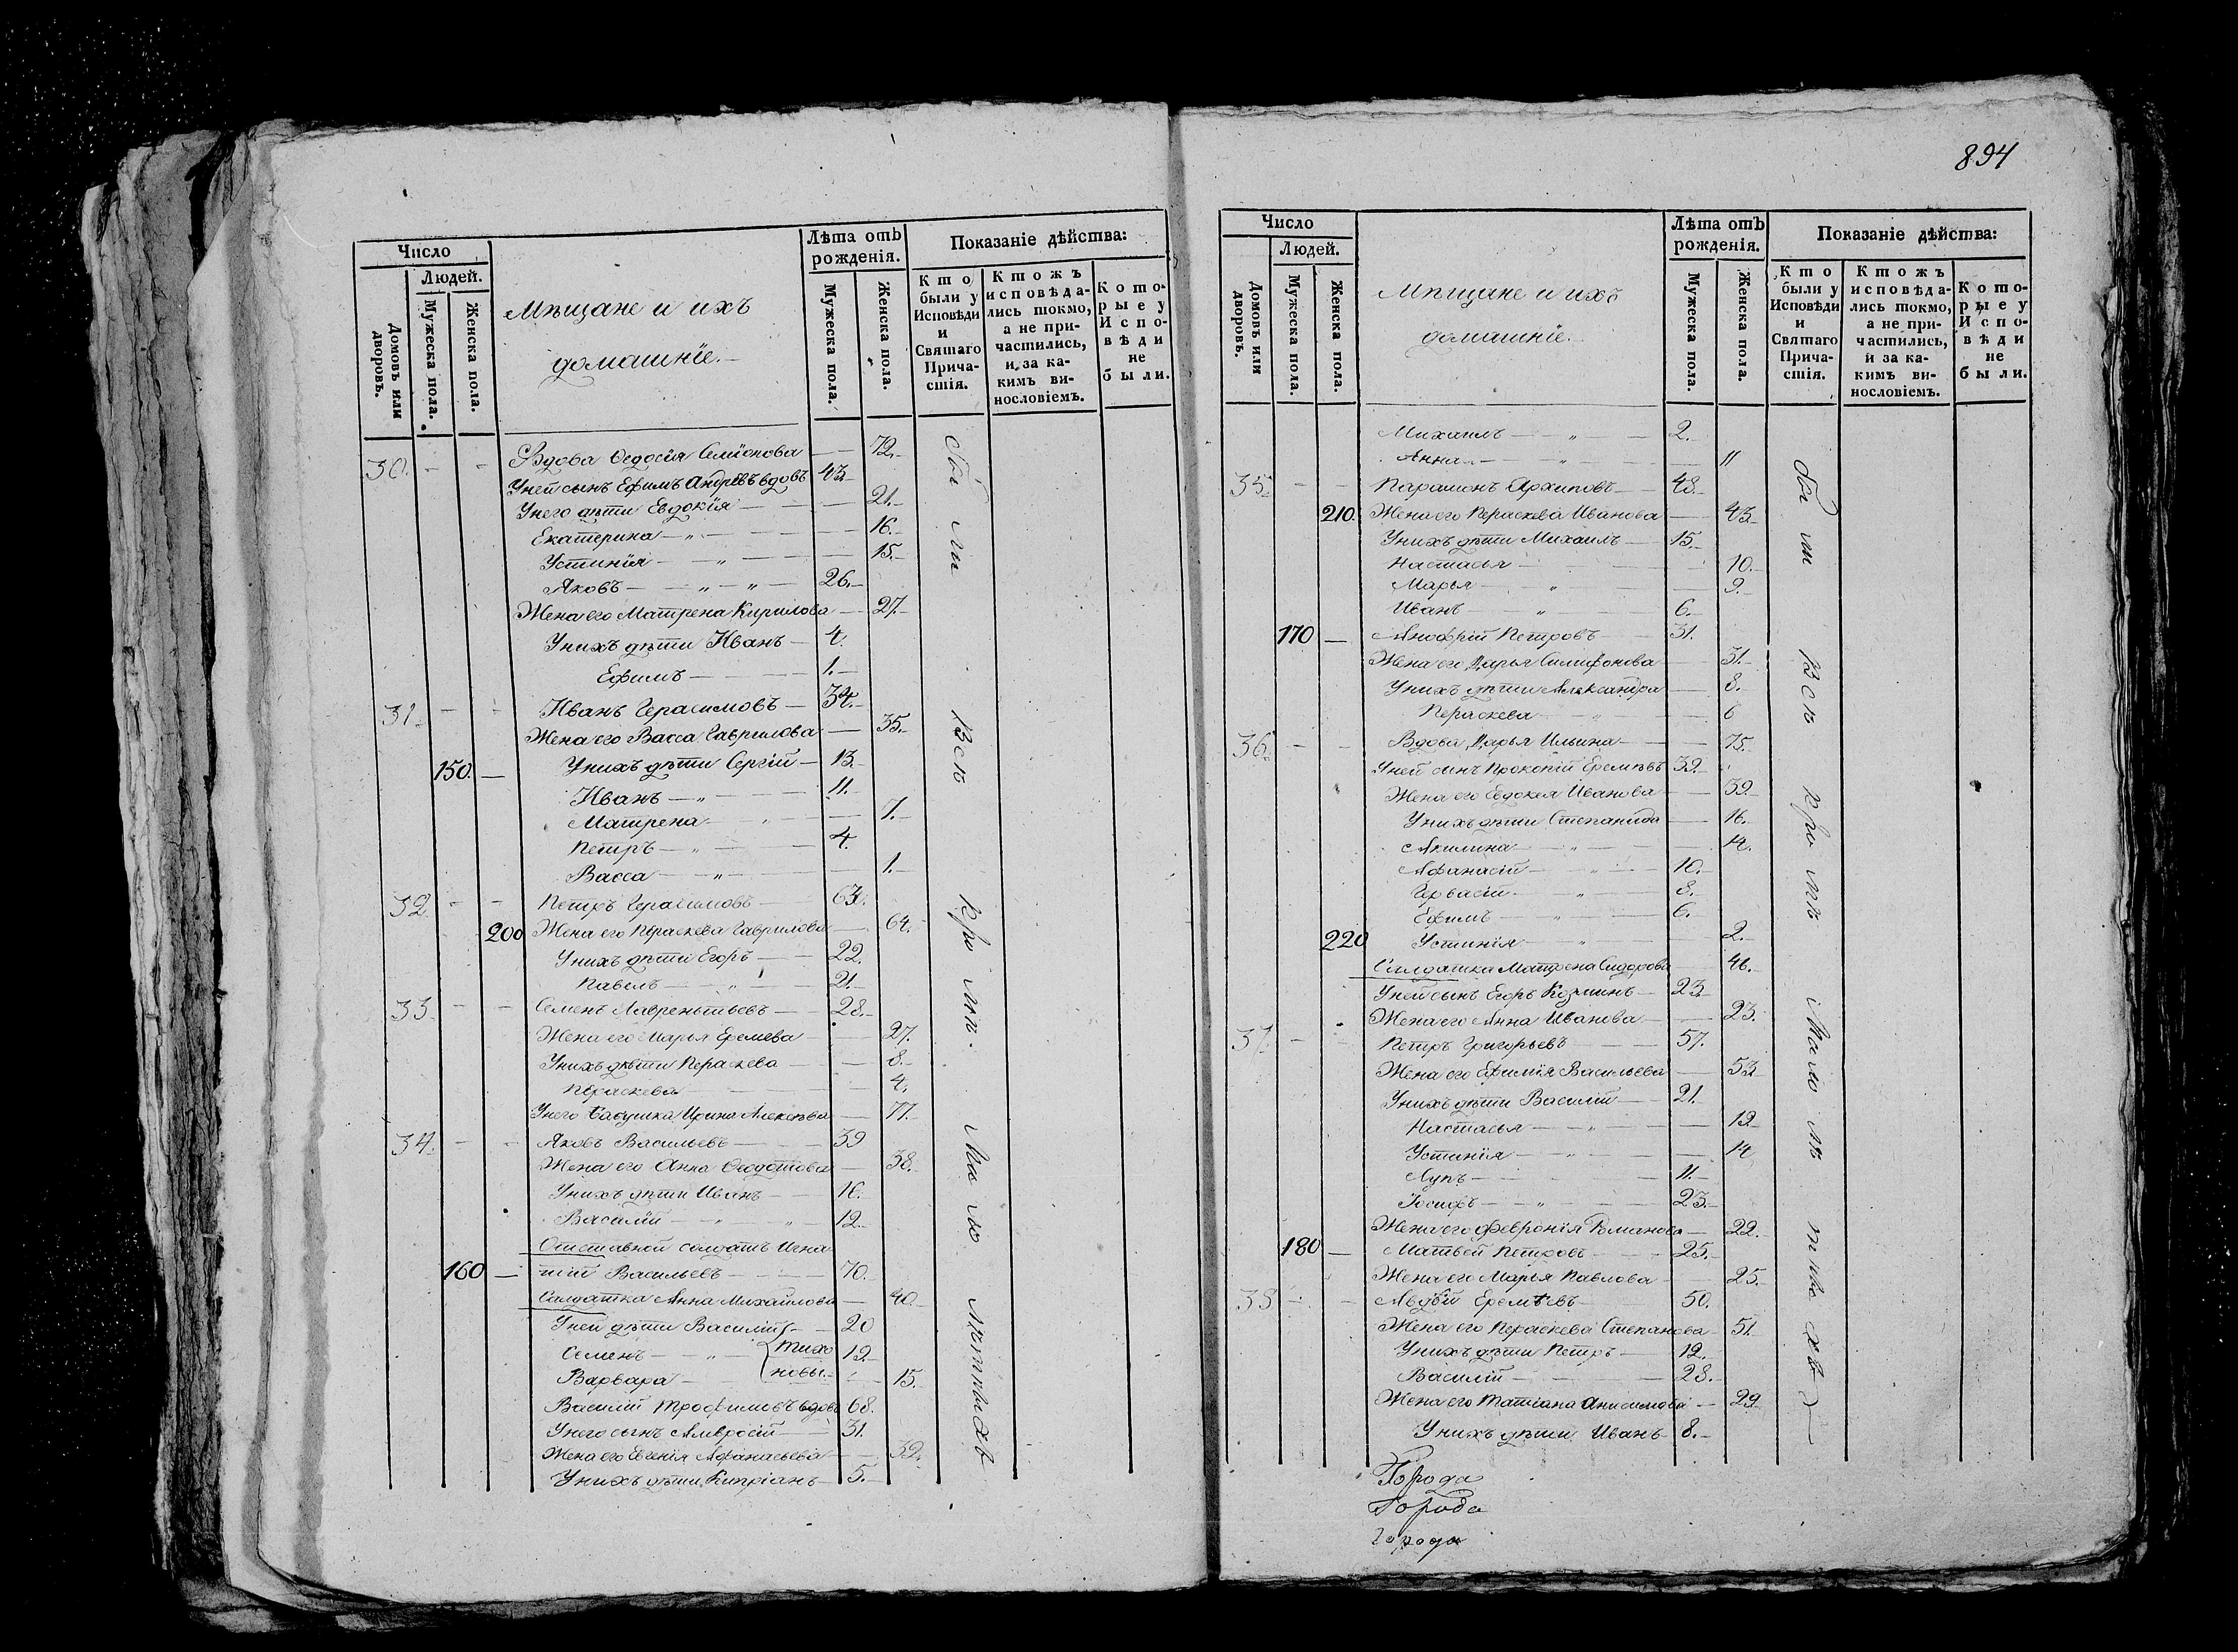 Число
Людей.
Домовъ или дворовъ.
Мужеска пола.
Женска пола.
Мѣщане и ихъ
домашніе.
Лѣта отъ
рожденія.
Мужеска пола.
Женска пола.
Показаніе дѣйства:
Кто были у Исповѣди и Святаго Причастія.
Ктожъ исповѣдались токмо, а не причастились, и за какимъ винословіемъ.
Которые у Исповѣди не были.
30. Вдова Ѳедосія Семіонова — 72.
Уней сынъ Ефимъ Андрѣевъ вдовъ 43
Унего дѣти Евдокія — 21.
Екатерина — „ — 16.
Устинія — „ — 15.
Яковъ — „ — „ — 26.
Жена его Матрена Кирилова — 27.
Унихъ дѣти Иванъ — 4.
Ефимъ — 1.
31. Иванъ Герасимовъ — 34.
Жена его Васса Гаврилова — 35.
150. — Унихъ дѣти Сергій — 13.
Иванъ — „ — 11.
Матрена — „ — 7.
Петръ — „ — 4.
Васса — „ — 1.
32. Петръ Герасимовъ — 63.
200 Жена его Пераскева Гаврилова — 64.
Унихъ дѣти Егоръ — 22.
Павелъ — „ — 21.
33. Семенъ Лаврентьевъ — 28.
Жена его Марья Еремева — 27.
Унихъ дѣти Пераскева — 8.
Пераскева — 4.
Унего бабушка Ирина Алексѣва — 77.
34. Яковъ Васильевъ — 39
Жена его Анна Ѳеодотова — 38.
Унихъ дѣти Иванъ — 16.
Василій — „ — „ — 12.
Отставной солдатъ Игна
160 — тій Васильевъ — 70.
Салдатка Анна Михайлова — 40.
Уней дѣти Василій — 20
Семенъ — „ — Тихо 12.
Варвара — новы. — 15.
Василій Трофимовъ вдовъ 68.
Унего сынъ Амвросій — 31.
Жена его Евгенія Афанасьева — 32.
Унихъ дѣти Кипріанъ — 5.
бы ли Всѣ кромѣ Мало лѣтныхъ
894
Число
Людей.
Домовъ или дворовъ.
Мужеска пола.
Женска пола.
Мѣщане и ихъ
домашніе.
Лѣта отъ
рожденія.
Мужеска пола.
Женска пола.
Показаніе дѣйства:
Кто были у Исповѣди и Святаго Причастія.
Ктожъ исповѣдались токмо, а не причастились, и за какимъ винословіемъ.
Которые у Исповѣди не были.
Михаилъ — „ — 2.
Анна — „ — 11
35. Парамонъ Архиповъ — 48.
210. Жена его Пераскева Иванова — 43
Унихъ дѣти Михаилъ — 15.
Настасья — 10.
Марья — „ — 9.
Иванъ — „ — 6.
170 — Анофрій Петровъ — 31.
Жена его Дарья Силифонова — 31.
Унихъ дѣти Александра — 8.
Пераскева — „ — 6
36. Вдова Дарья Ильина — 75.
Уней сынъ Прокопій Еремѣвъ 39.
Жена его Евдокея Иванова — 39.
Унихъ дѣти Степанида — 16.
Акилина — „ — 14.
Афанасій — „ — 10.
Гервасій — „ — 8.
Ефимъ — „ — 6.
220 Устинія — „ — 2.
Салдатка Матрена Сидорова — 46.
Уней сынъ Егоръ Козминъ — 23.
Жена его Анна Иванова — 23.
37. Петръ Григорьевъ — 57.
Жена его Ефимія Васильева — 53
Унихъ дѣти Василій — 21.
Настасья — „ — 19
Устинія — „ — 14
Лупъ — 11.
Іосифъ — „ — 23.
Жена его Февронія Романова — 22.
180 — Матвей Петровъ — 25.
Жена его Марья Павлова — 25.
38 Авдѣй Еремѣевъ — 50.
Жена его Пераскева Степанова — 51.
Унихъ дѣти Петръ — 19.
Василій — 28.
Жена его Татіана Анисимова — 29
Унихъ дѣти Иванъ — 8.
бы ли Всѣ кромѣ Мало лѣтныхъ
Города
Города
Города